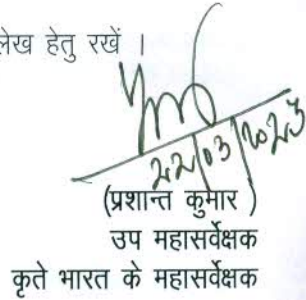 लेख हेतु रखें ।
22/03/2023
(प्रशान्त कुमार )
उप महासर्वेक्षक
कृते भारत के महासर्वेक्षक